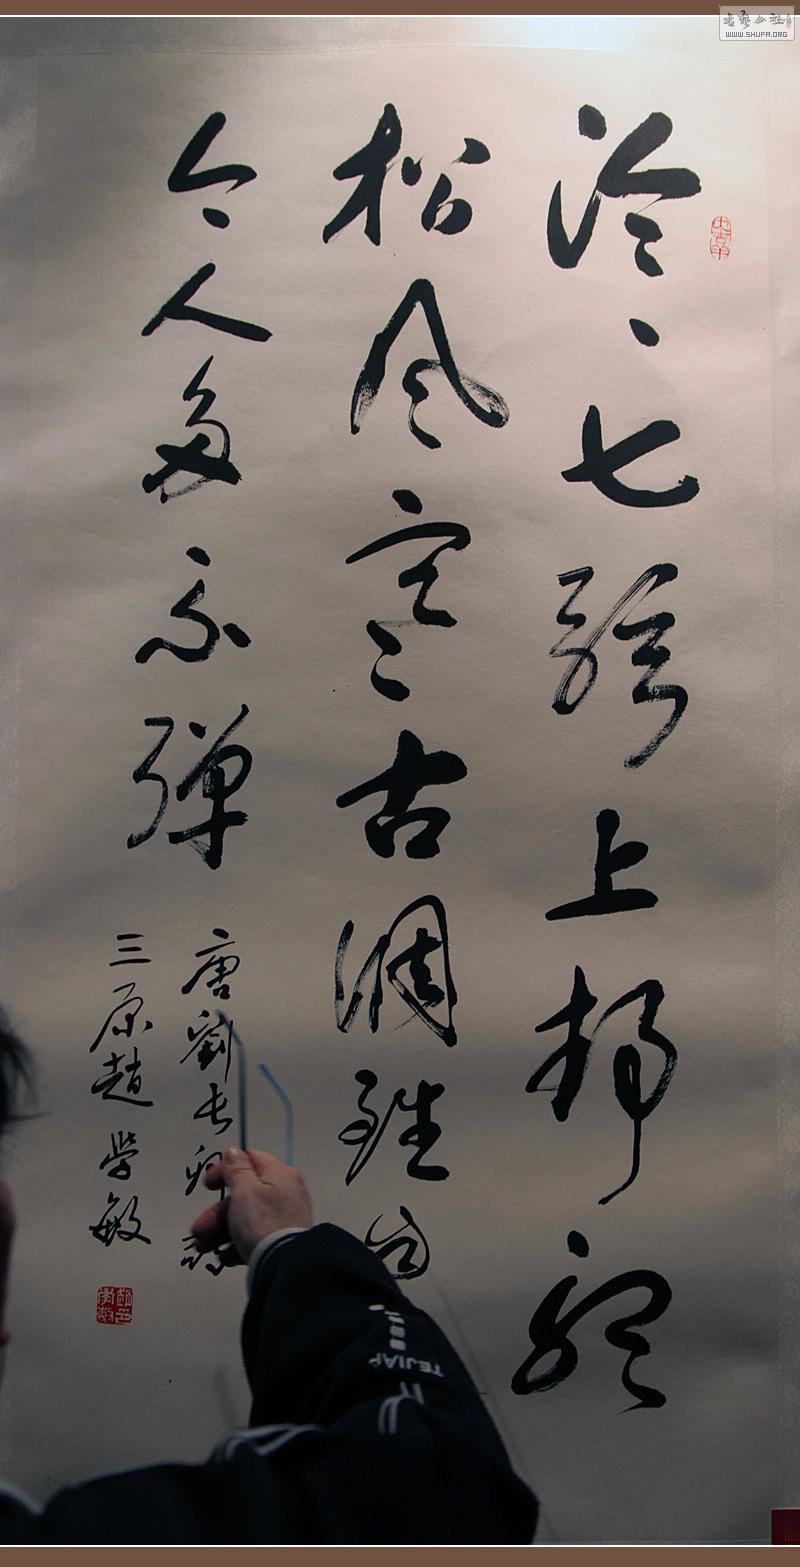 泠〻七弦上静听
松风寒古调虽自
今人多不弹
唐劉长卿
三原趙學敏
TEJIAP
书艺公社
WWW.SHUFA.ORG